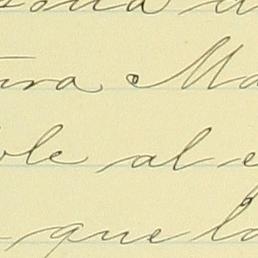 ura Ma
ole al e
que la